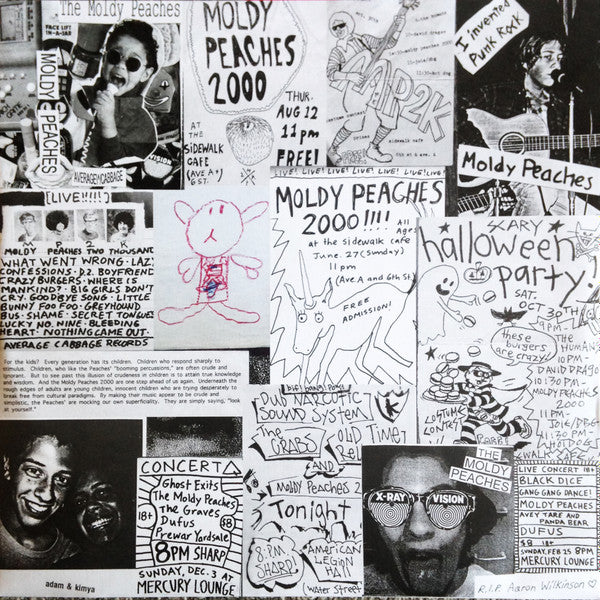 The Moldy Peaches
FACE LIFT
IN-A-JAR
MOLDY PEACHES
AVERAGE CABBAGE
VISION
MOLDY
PEACHES
2000
THUR.
AUG 12
11 pm
FREE!
AT
THE
SIDEWALK
CAFE
(AVE A +)
6 ST.
MP2K
sidewalk cafe
I invented
Punk Rock
Moldy Peaches
[LIVE!!!!]
MOLDY PEACHES TWO THOUSAND
WHAT WENT WRONG · LAZY
CONFESSIONS · D.2. BOYFRIEND
CRAZY BURGERS · WHERE IS
MANKIND? · BIG GIRLS DON'T
CRY · GOODBYE SONG · LITTLE
BUNNY FOO FOO · GREYHOUND
BUS · SHAME · SECRET TONGUES
LUCKY NO. NINE · BLEEDING
HEART · NOTHING CAME OUT ·
AVERAGE CABBAGE RECORDS
LIVE! LIVE! LIVE! LIVE! LIVE! LIVE!
MOLDY PEACHES
2000!!!!
All
Ages
at the sidewalk cafe
June 27 (Sunday)
11 pm
(Ave A and 6th St.)
FREE
ADMISSION!
SCARY
halloween
party!
SAT.
OCT 30TH
9PM-
THE HUMANS
10PM-
DAVID DRAGO
10:30 PM-
MOLDY PEACHES
2000
11PM-
these
burgers
are crazy!
COSTUME
CONTEST
For the kids? Every generation has its children. Children who respond sharply to
stimulus. Children who, like the Peaches' "booming percussions," are often crude and
ignorant. But to see past this illusion of crudeness in children is to attain true knowledge
and wisdom. And the Moldy Peaches 2000 are one step ahead of us again. Underneath the
rough edges of adults are young children, innocent children who are trying desperately to
break free from cultural paradigms. By making their music appear to be crude and
simplistic, the Peaches' are mocking our own superficiality. They are simply saying, "look
at yourself."
adam & kimya
CONCERT
Ghost Exits
The Moldy Peaches
The Graves
Dufus
Prewar Yardsale
18+
$8
8PM SHARP
SUNDAY, DEC. 3 AT
MERCURY LOUNGE
DUB NARCOTIC
SOUND SYSTEM
The
CRABS
OLD TIME
REL
AND
Moldy Peaches 2
Tonight
8 P.M.
SHARP!
American
Legion
Hall
(Water Street
X-RAY
VISION
THE
MOLDY
PEACHES
LIVE CONCERT
BLACK DICE
GANG GANG DANCE!
MOLDY PEACHES
AVEY TARE AND
PANDA BEAR
DUFUS
$8 18+
SUNDAY, FEB 25 8PM
MERCURY LOUNGE
R.I.P. Aaron Wilkinson